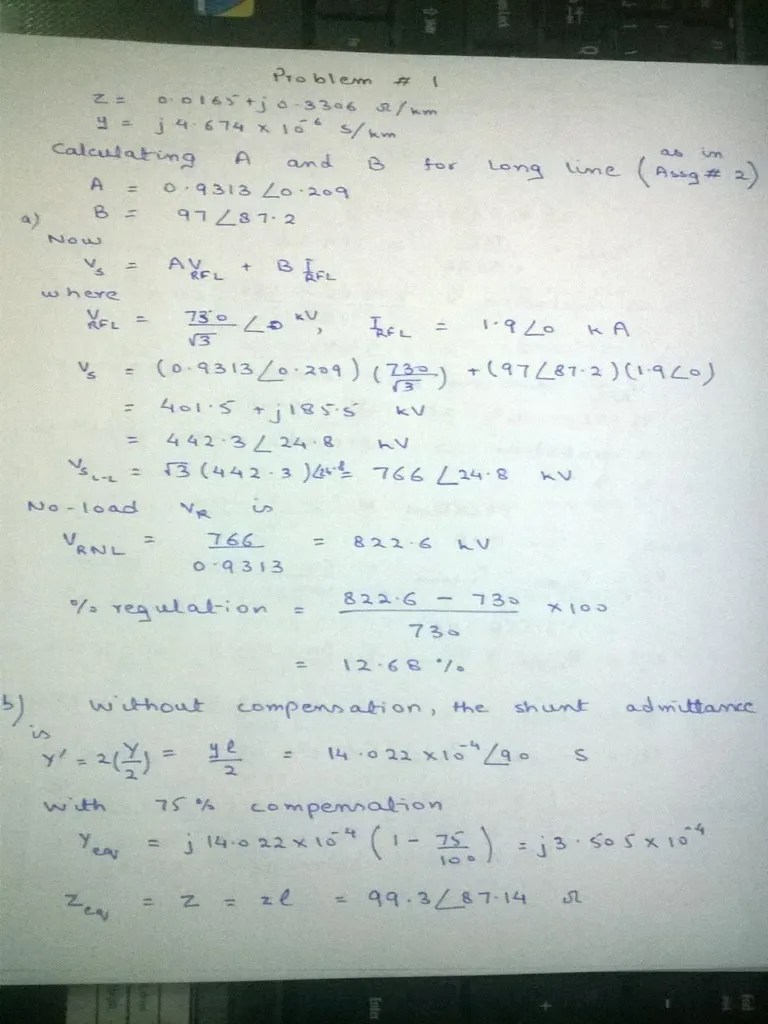 Problem # 1
z = 0.0165 + j 0.3306 Ω/km
y = j 4.674 × 10⁻⁶ S/km
Calculating A and B for long line (as in Assg # 2)
A = 0.9313 ∠0.209
B = 97 ∠87.2
a)
Now
V_S = A V_RFL + B I_RFL
where
V_RFL = 730/√3 ∠0 kV, I_RFL = 1.9∠0 kA
V_S = (0.9313∠0.209)(730/√3) + (97∠87.2)(1.9∠0)
= 401.5 + j185.5 kV
= 442.3∠24.8 kV
V_S L-L = √3(442.3)∠24.8 = 766 ∠24.8 kV
No-load V_R is
V_RNL = 766/0.9313 = 822.6 kV
% regulation = (822.6 - 730)/730 × 100
= 12.68 %
b) Without compensation, the shunt admittance
is
Y' = 2(Y/2) = yl/2 = 14.022 × 10⁻⁴ ∠90 S
with 75% compensation
Y_eq = j 14.022 × 10⁻⁴ (1 - 75/100) = j3.505 × 10⁻⁴
Z_eq = Z = zl = 99.3∠87.14 Ω
Enter
End